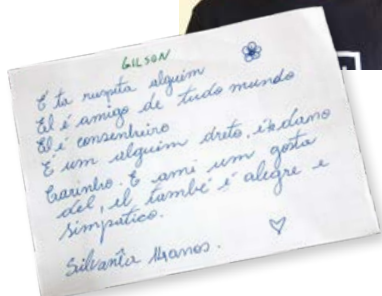 GILSON
É ta ruspita alguim
El é amigo de tudo mundo
El é consenheiro
É um alguim dreto, ikdano
Carinho. E ami um gosta
del, el també é alegre e
simpático.
Silvanîa